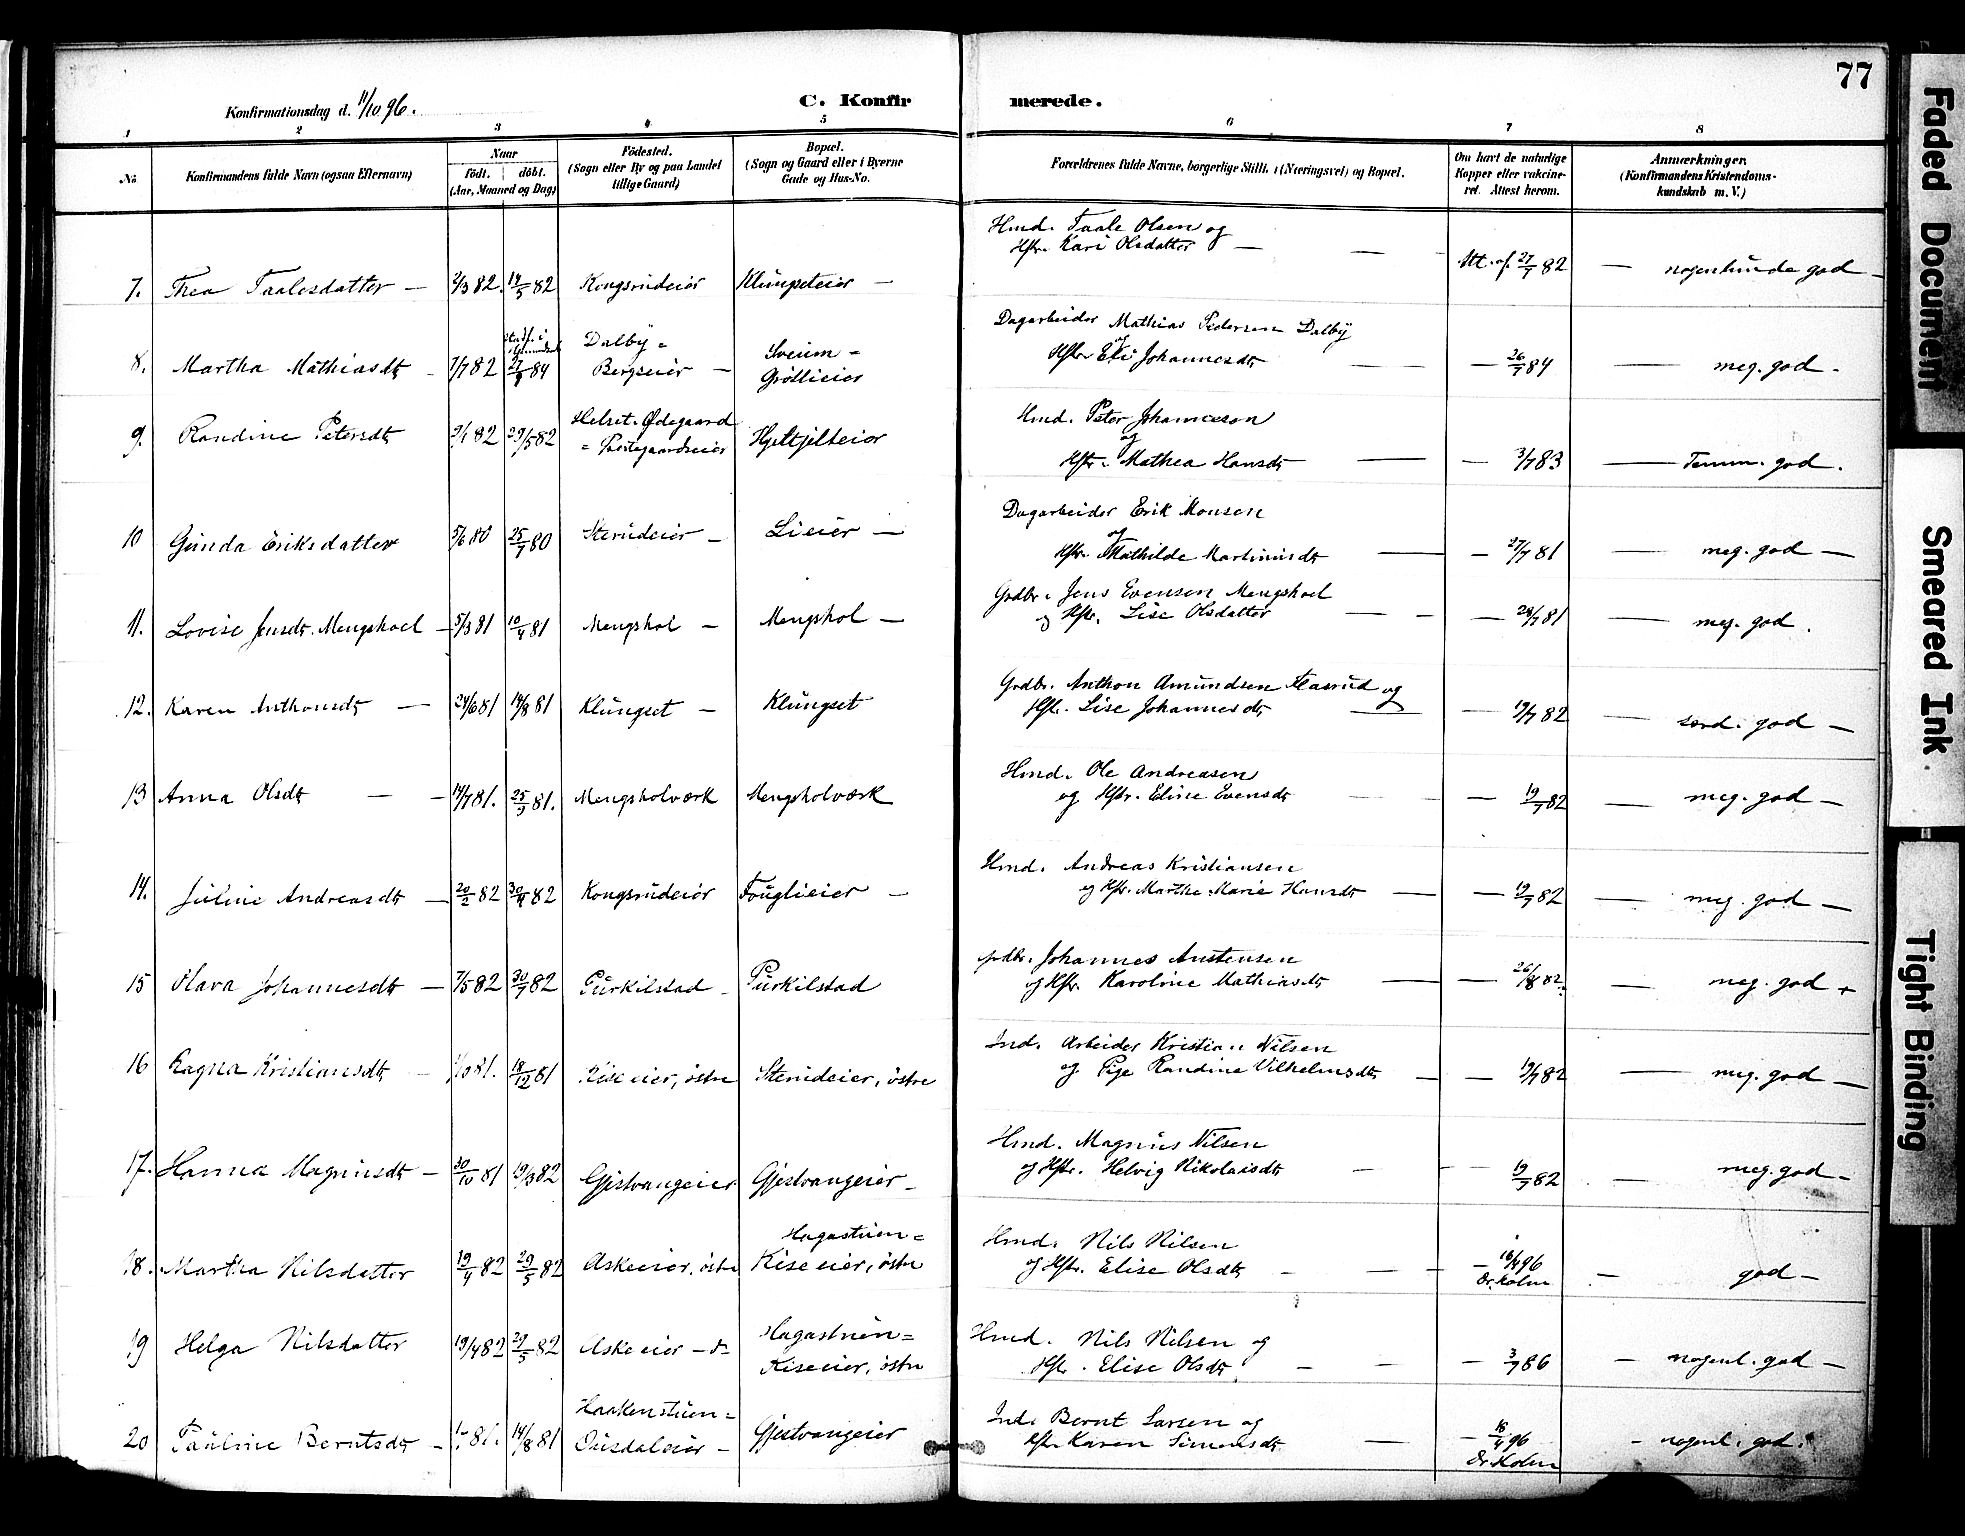 77
Konfirmationsdag d. 11/10 96.
C. Konfirmerede.
1 2 3 4 5 6 7 8
No.
Konfirmandens fulde Navn (ogsaa Efternavn)
Naar
födt. döbt.
(Aar, Maaned og Dag)
Födested.
(Sogn eller By og paa Landet
tillige Gaard)
Bopæl.
(Sogn og Gaard eller i Byerne
Gade og Hus-No.
Forældrenes fulde Navne, borgerlige Stilling (Næringsvei) og Bopæl.
Om havt de naturlige
Kopper eller vakcine-
ret. Attest herom.
Anmærkninger.
(Konfirmandens Kristendoms-
kundskab m. V.)
Hmd. Taale Olsen og
Hstr. Kari Olsdatter
7. Thea Taalesdatter — 2/3 82. 14/5 82 Kongsrudeier Klungseteier — Att. af 27/7 82 — nogenlunde god —
Dagarbeider Mathias Pedersen Dalby
og
8. Martha Mathiasdt. 1/7 82 27/9 84 Dalby =
Bergseier — Sveum =
Gröllieier Hstr. Eli Johannesdt. — 26/7 84 — meg. god -
Hmd. Peter Johannesen
og
9. Randine Petersdt. 9/1 82 29/5 82 Helset. Ødegaard
= Præstegaardseier Hjeltjelteier Hstr. Mathea Hansdt. — 3/7 83 — Temm. god.
Dagarbeider Erik Monsen
og
10 Gunda Eriksdatter 5/6 80 25/7 80 Sterudeier — Lieier — Hstr. Mathilde Martinusdt. — 27/7 81 — meg. god —
Grdbr. Jens Evensen Mengshoel
11. Lovise Jensdt. Mengshoel — 5/3 81 10/4 81 Mengshol — Mengshol — og Hstr. Lise Olsdatter — 28/7 81 — meg. god.
Grdbr. Anthon Amundsen Flasrud og
12. Karen Anthonsdt. — 24/6 81 14/8 81 Klungset — Klungset Hstr. Lise Johannesdt. — 19/7 82 — særd. god —
Hmd. Ole Andreasen
13 Anna Olsdt. — 14/7 81. 25/9 81. Mengsholværk Mengsholværk og Hstr. Eline Evensdt. — 19/7 82 — meg. god —
Hmd. Andreas Kristiansen
14. Juline Andreasdt. — 20/2 82 30/4 82 Kongsrudeier Fouglieier — og Hstr. Marthe Marie Hansdt. — 19/7 82 — meg. god —
Grdbr. Johannes Austensen
15 Olava Johannesdt. — 7/5 82 30/7 82 Purkilstad — Purkilstad og Hstr. Karoline Mathiasdt. — 26/8 82. — meg. god
Ind. Arbeider Kristian Nilsen
16 Ragna Kristiansdt. 18/12 81 Kiseeier, östre Sterudeier, östre og Pige Randine Vilhelmsdt. — 19/7 82 — meg. god —
Hmd. Magnus Nilsen
17. Hanna Magnusdt. — 30/10 81 19/3 82 Gjestvangeier Gjestvangeier — og Hstr. Helvig Nikolaisdt. — 19/7 82 — meg. god —
Hmd. Nils Nilsen
18. Martha Nilsdatter 19/4 82 29/5 82 Askeeier, östre Hagastuen =
Kiseeier, östre og Hstr. Elise Olsdt. — 18/4 96
Dr. Kolm — god —
Hmd. Nils Nilsen og
19 Helga Nilsdatter 19/4 82 29/5 82 Askeeier — Hagastuen =
Kiseeier, östre Hstr. Elise Olsdt. — 3/7 86 — nogenl. god —
Ind. Bernt Larsen og
20 Pauline Berntsdt. — 81. 14/8 81 Haakenstuen =
Ousdaleier — Gjestvangeier Hstr. Karen Simensdt. — 18/4 96
Dr. Kolm — nogenl. god.
Faded Document
Smeared Ink.
Tight Binding